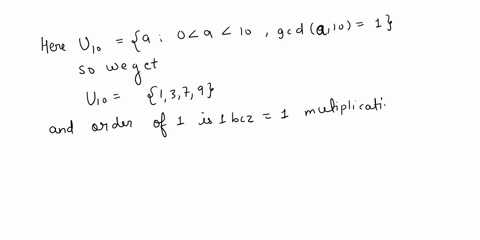 Here U10 = {a : 0 < a < 10 , gcd(a,10) = 1}
so we get
U10 = {1,3,7,9}
and order of 1 is 1 bcz = 1 multiplicati